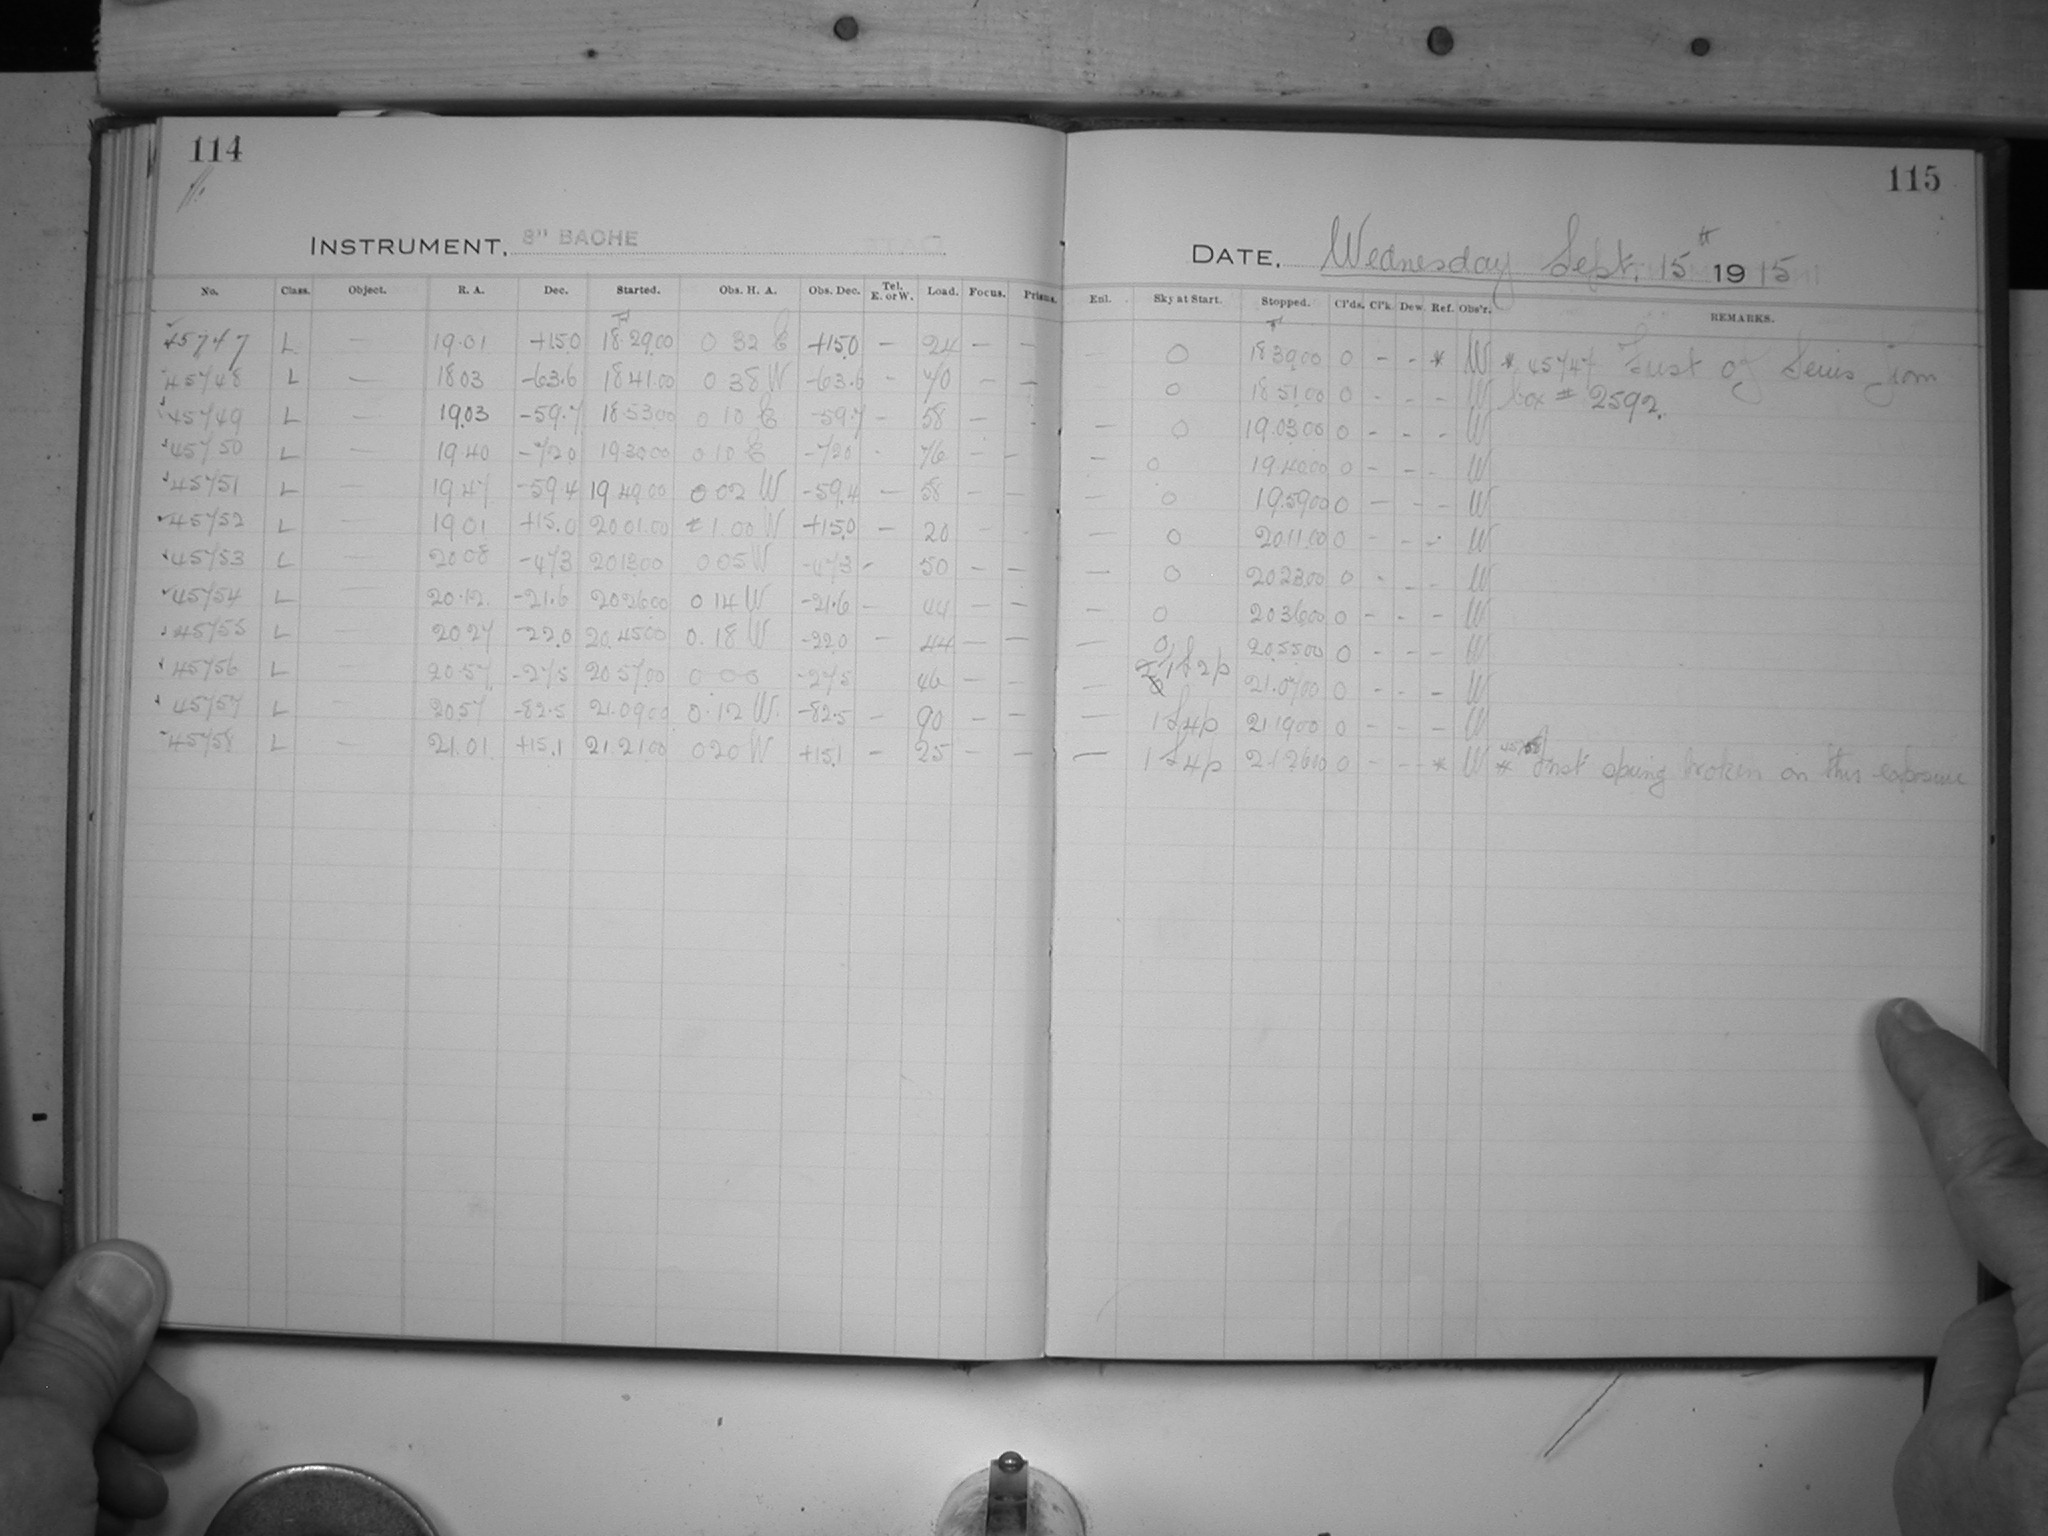 114
INSTRUMENT, 8" BACHE
No. Class. Object. R. A. Dec. Started. Obs. H. A. Obs. Dec. Tel. E. or W. Load. Focus. Prisms.
45747 L — 19.01 +15.0 18.29.00 0 32 E +15.0 — 24 — —
45748 L — 18 03 -63.6 18 41.00 0 38 W -63.6 - 70 - —
45749 L — 19.03 -59.7 18 53 00 0 10 E -59.7 — 58 — -
45750 L — 19.40 -72.0 19.30.00 0 10 E -72.0 - 76 - —
45751 L — 19 47 -59 4 19 49 00 0 02 W -59.4 — 58 — —
45752 L — 19 01 +15.0 20 01.00 1.00 W +15.0 — 20 - -
45753 L — 20 08 -47.3 20 13 00 0 05 W -47.3 - 50 — —
45754 L — 20.12. -21.6 20 26 00 0 14 W -21.6 — 44 — —
45755 L — 20.27 -22.0 20.45 00 0.18 W -22.0 — 44 — —
45756 L — 20.57. -27.5 20 57.00 0 00 -27.5 46 - —
45757 L — 20 57 -82.5 21.09 00 0.12 W. -82.5 — 90 - —
45758 L — 21.01. +15.1 21.21.00 0 20 W +15.1 — 25 — —
115
DATE, Wednesday Sept. 15th 1915
Enl. Sky at Start. Stopped. Cl'ds. Cl'k. Dew. Ref. Obs'r. REMARKS.
— 0 18 39 00 0 - - * W * 45747 First of Series from
0 18 51.00 0 - - - W box # 2592.
— 0 19.03 00 0 - - - W
— 0 19.40.00 0 - - - W
— 0 19.59 00 0 — - - W
— 0 20 11.00 0 - - - W
— 0 20 23.00 0 - - - W
— 0 20 36 00 0 - - - W
— 0 20.55.00 0 - - - W
— 1 S 2 p 21.07.00 0 - - - W
— 1 S 4 p 21.19.00 0 - - - W
— 1 S 4 p 21 26 00 0 - - * W * 45758 spring broken on this exposure